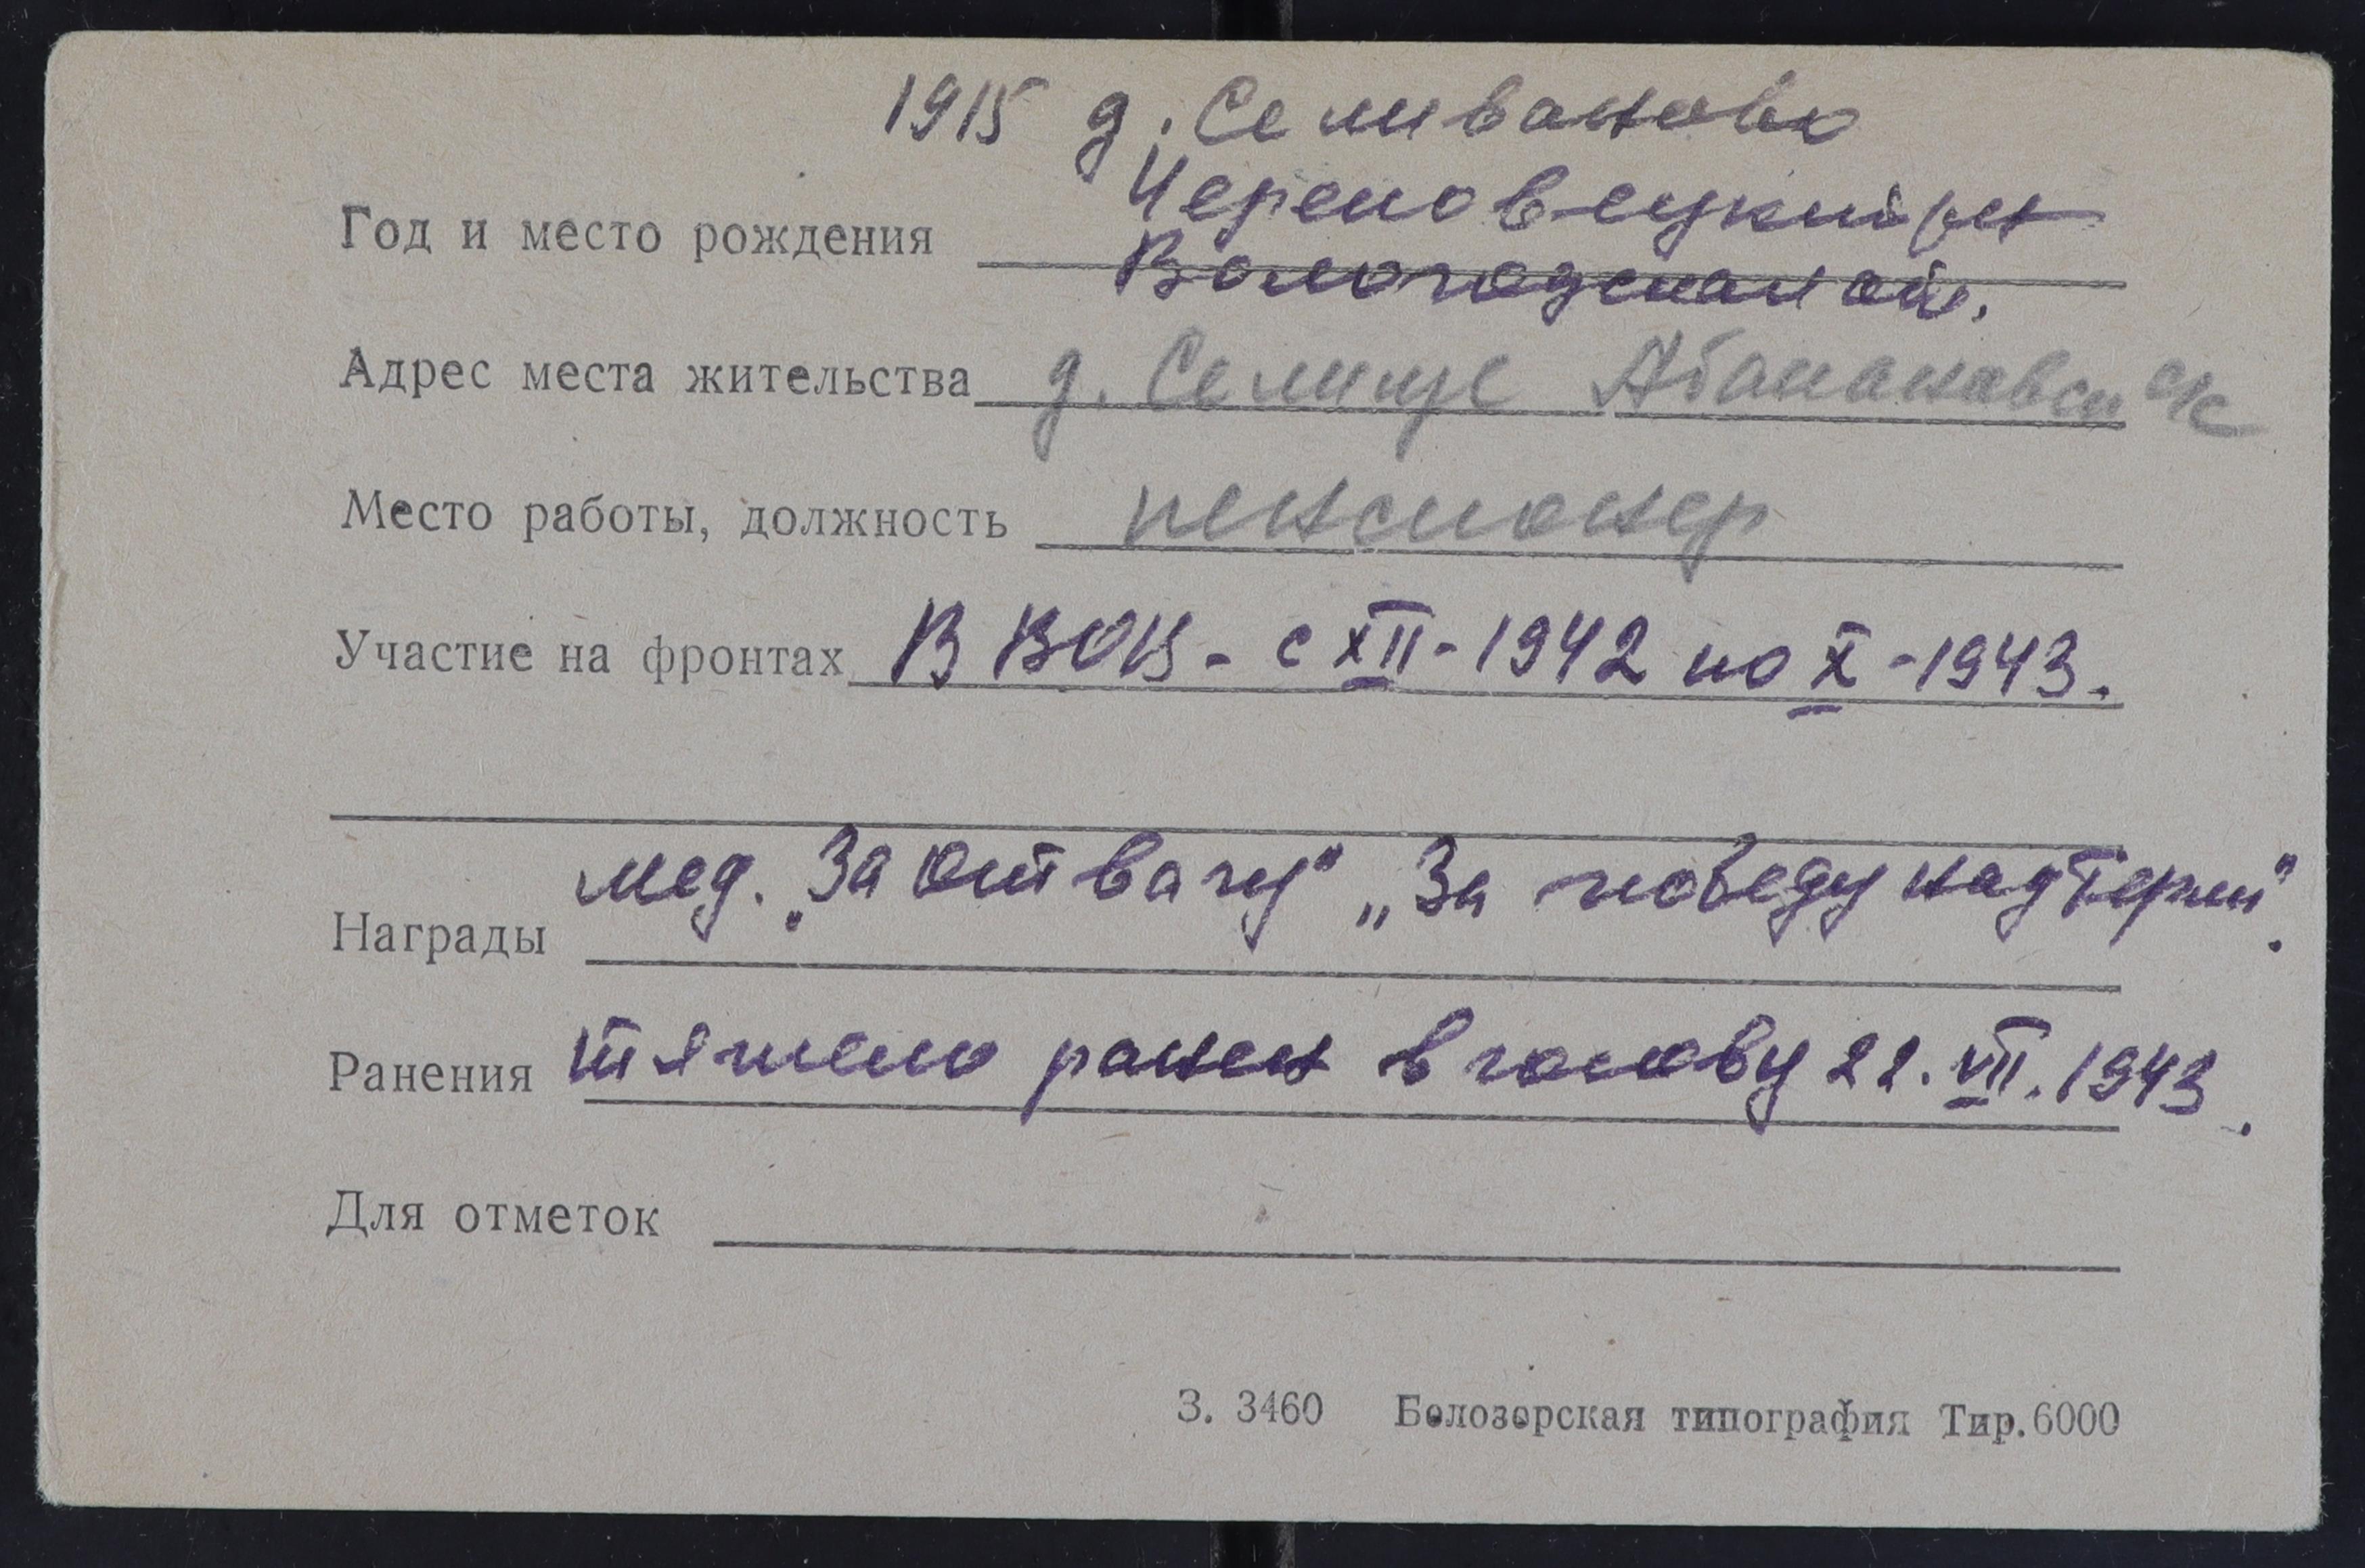 1915 д. Селиваново
Череповецкий р-н
Год и место рождения
Вологодская об.
Адрес места жительства д. Селище Абакановск с/с
Место работы, должность пенсионер
Участие на фронтах В ВОВ - с XII - 1942 по X - 1943.
мед. „За отвагу" „За победу над Герм".
Награды
Ранения тяжело ранен в голову 22. VII. 1943.
Для отметок
З. 3460 Белозерская типография Тир. 6000